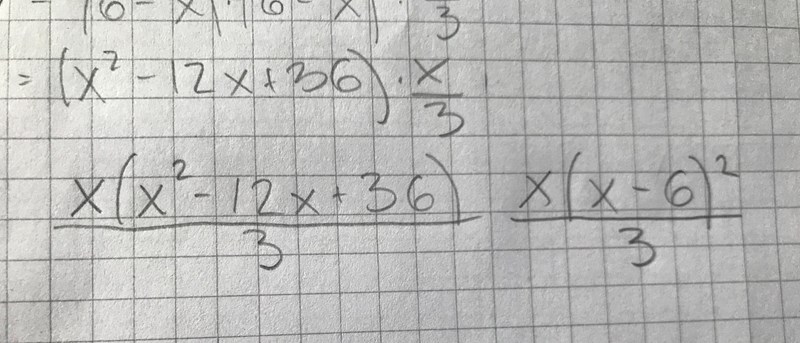 (6 - x) · (6 - x) · x/3
= (x² - 12x + 36) · x/3
x(x² - 12x + 36)/3 x(x - 6)²/3